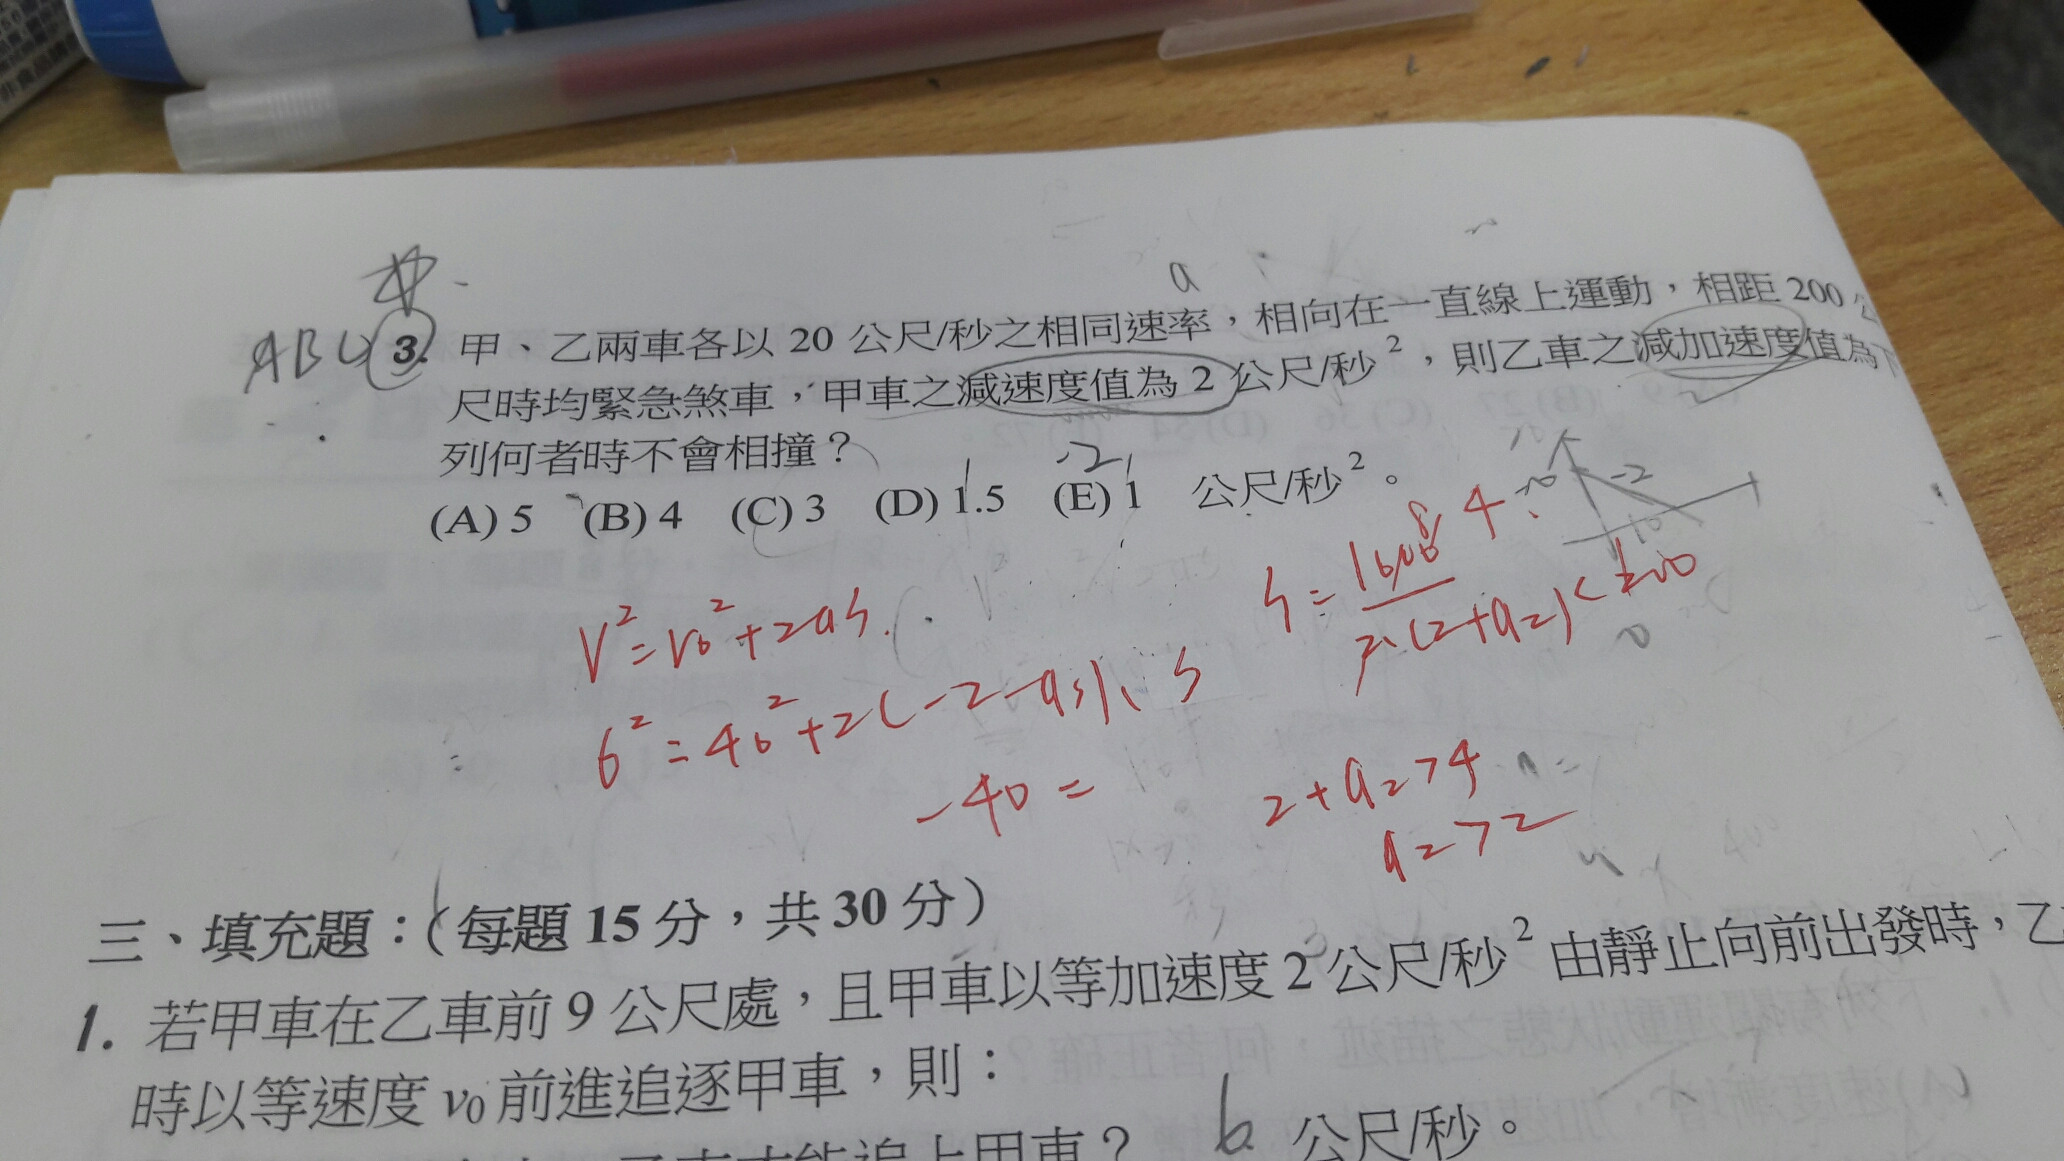 ABC 3. 甲、乙兩車各以 20 公尺/秒之相同速率,相向在一直線上運動,相距 200 公
尺時均緊急煞車,甲車之減速度值為 2 公尺/秒²,則乙車之減加速度值為下
列何者時不會相撞?
(A) 5 (B) 4 (C) 3 (D) 1.5 (E) 1 公尺/秒²。
V² = V₀² + 2as.
0² = 40² + 2(-2-a₂)·s
-40 =
2 + a₂ > 4
a₂ > 2
三、填充題:(每題 15 分,共 30 分)
1. 若甲車在乙車前 9 公尺處,且甲車以等加速度 2 公尺/秒² 由靜止向前出發時,乙
時以等速度 v₀ 前進追逐甲車,則:
6 公尺/秒。